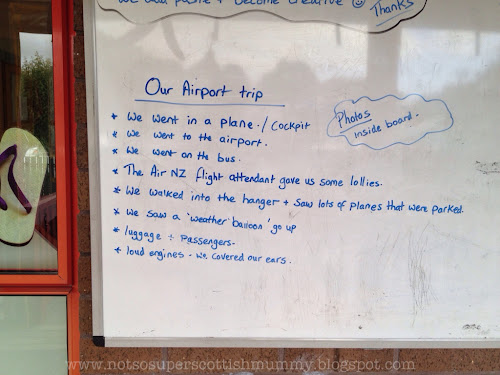 we add paste + become creative ☺
Thanks
Our Airport trip
* We went in a plane. / Cockpit
* We went to the airport.
* We went on the bus.
* The Air NZ flight attendant gave us some lollies.
* We walked into the hanger + saw lots of planes that were parked.
* We saw a 'weather balloon' go up
* luggage + Passengers.
* loud engines - we covered our ears.
Photos
inside board.
www.notsosuperscottishmummy.blogspot.com